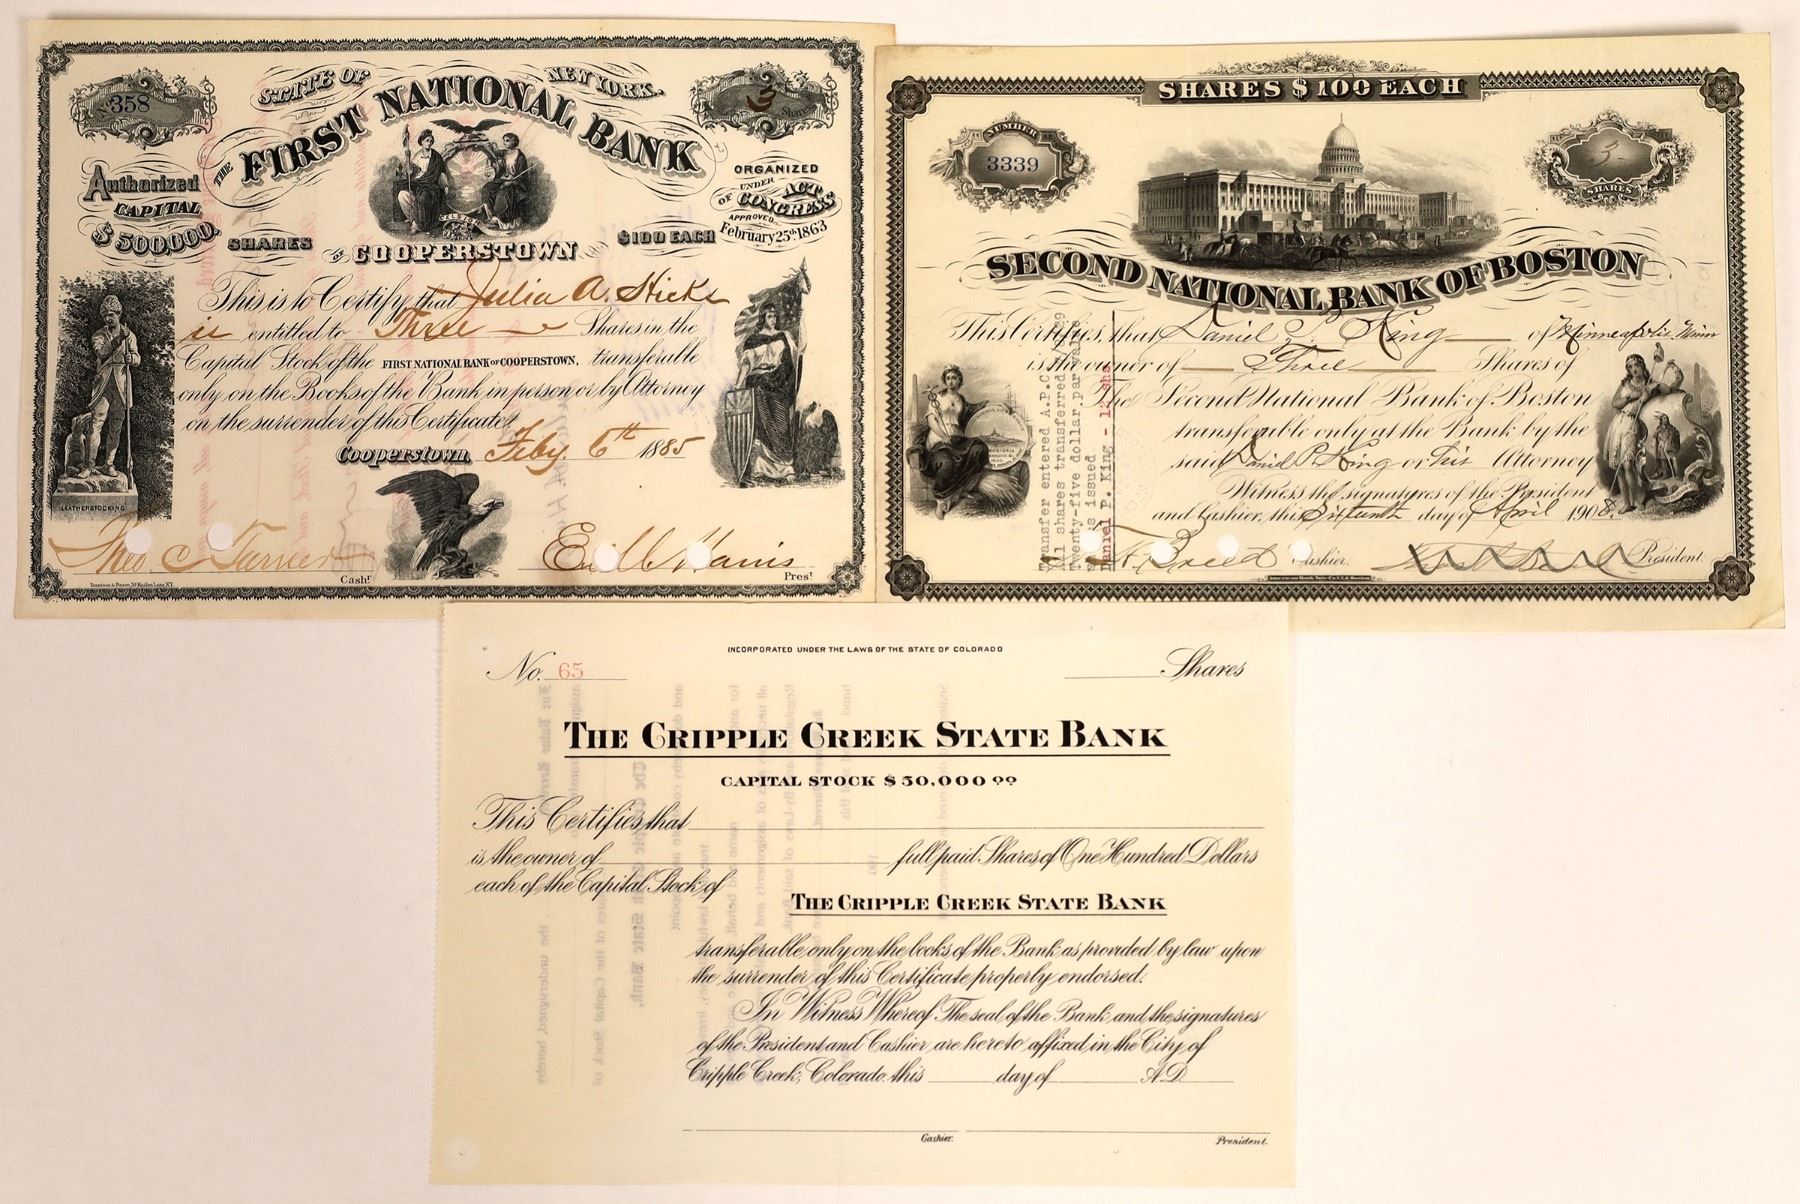 No. 358
STATE OF NEW YORK.
3 Shares
THE FIRST NATIONAL BANK
Authorized CAPITAL $500,000.
ORGANIZED UNDER ACT OF CONGRESS APPROVED February 25th 1863
EXCELSIOR
SHARES OF COOPERSTOWN $100 EACH
This is to Certify that Julia A. Hicks
is entitled to Three Shares in the
Capital Stock of the FIRST NATIONAL BANK OF COOPERSTOWN, transferable
only on the Books of the Bank in person or by Attorney
on the surrender of this Certificate.
Cooperstown, Feby. 6th 1885
LEATHERSTOCKING
Cash!
Pres!
SHARES $100 EACH
NUMBER 3339
3 SHARES
SECOND NATIONAL BANK OF BOSTON
This Certifies that Daniel P. King of Minneapolis Minn
is the owner of Three Shares of
The Second National Bank of Boston
transferable only at the Bank by the
said Daniel P. King or his Attorney
Witness the signatures of the President
and Cashier, this Sixteenth day of April 1908.
Cashier. President.
Transfer entered A.P.C.
All shares transferred
twenty-five dollar par
is issued
Daniel P. King - 12 shs
INCORPORATED UNDER THE LAWS OF THE STATE OF COLORADO
No. 65 Shares
THE CRIPPLE CREEK STATE BANK
CAPITAL STOCK $50,000 00
This Certifies that
is the owner of full paid Shares of One Hundred Dollars
each of the Capital Stock of
THE CRIPPLE CREEK STATE BANK
transferable only on the books of the Bank as provided by law upon
the surrender of this Certificate properly endorsed.
In Witness Whereof The seal of the Bank and the signatures
of the President and Cashier are hereto affixed in the City of
Cripple Creek, Colorado this day of A.D.
Cashier. President.